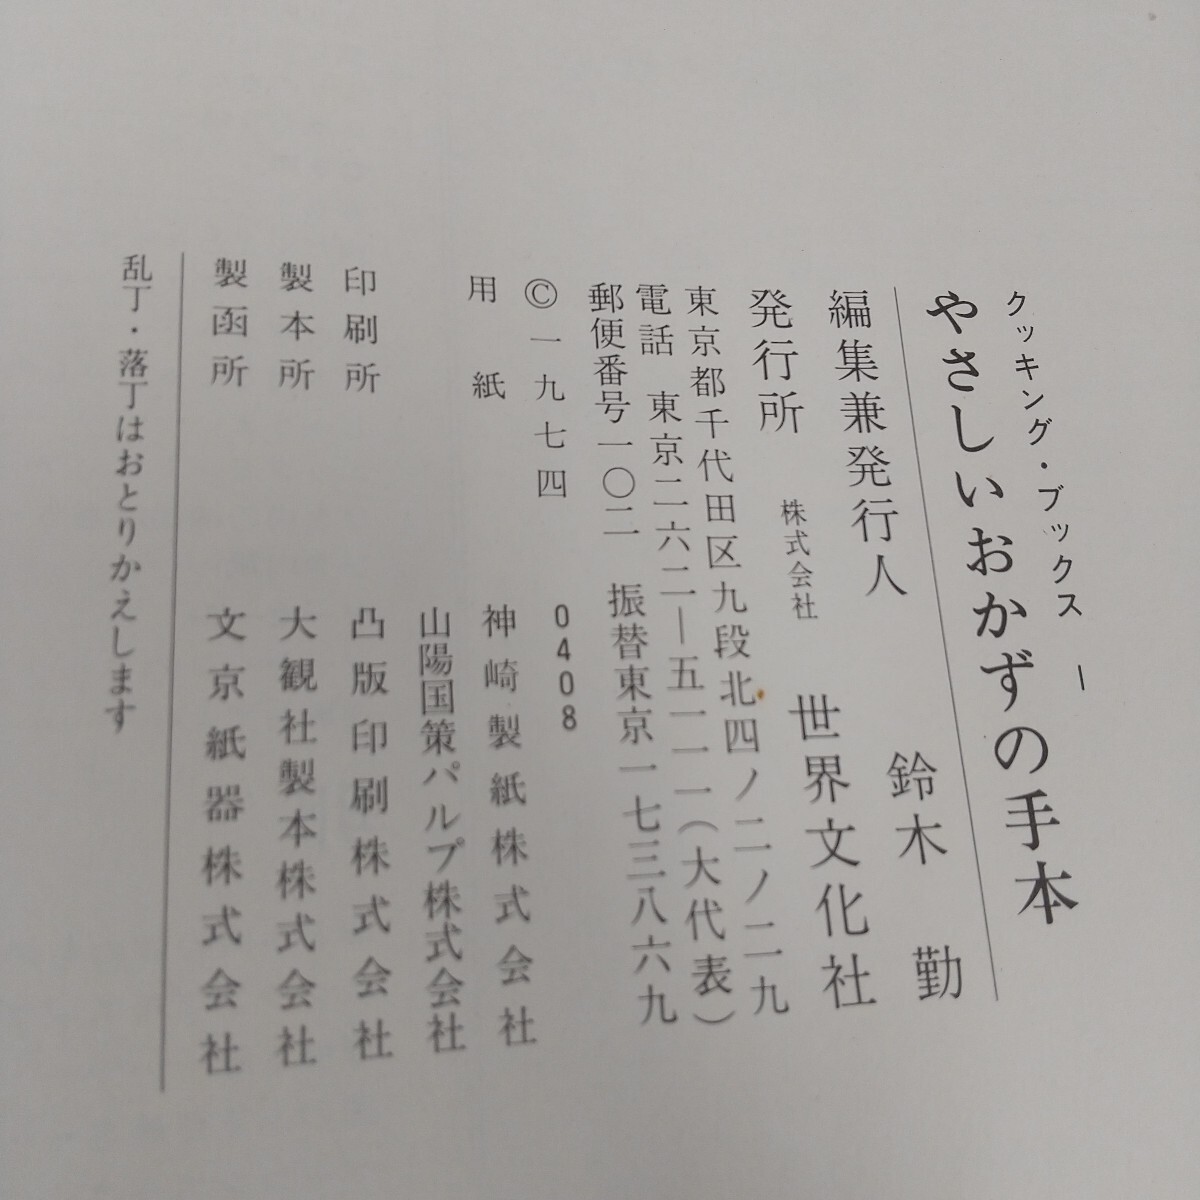 クッキング・ブックス 1
やさしいおかずの手本
編集兼発行人 鈴木 勤
発行所 株式会社 世界文化社
東京都千代田区九段北四ノ二ノ二九
電話 東京二六二―五一一一(大代表)
郵便番号一〇二 振替東京一七三八六九
© 一九七四 0408
用紙 神崎製紙株式会社
山陽国策パルプ株式会社
印刷所 凸版印刷株式会社
製本所 大観社製本株式会社
製函所 文京紙器株式会社
乱丁・落丁はおとりかえします